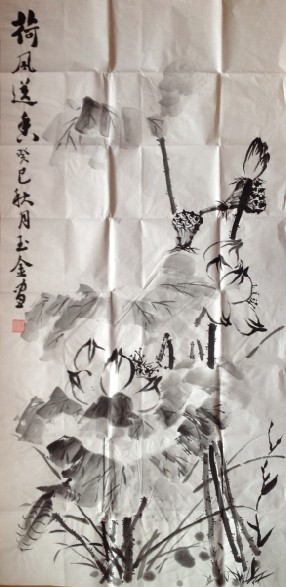 荷风送香癸巳秋月玉金画